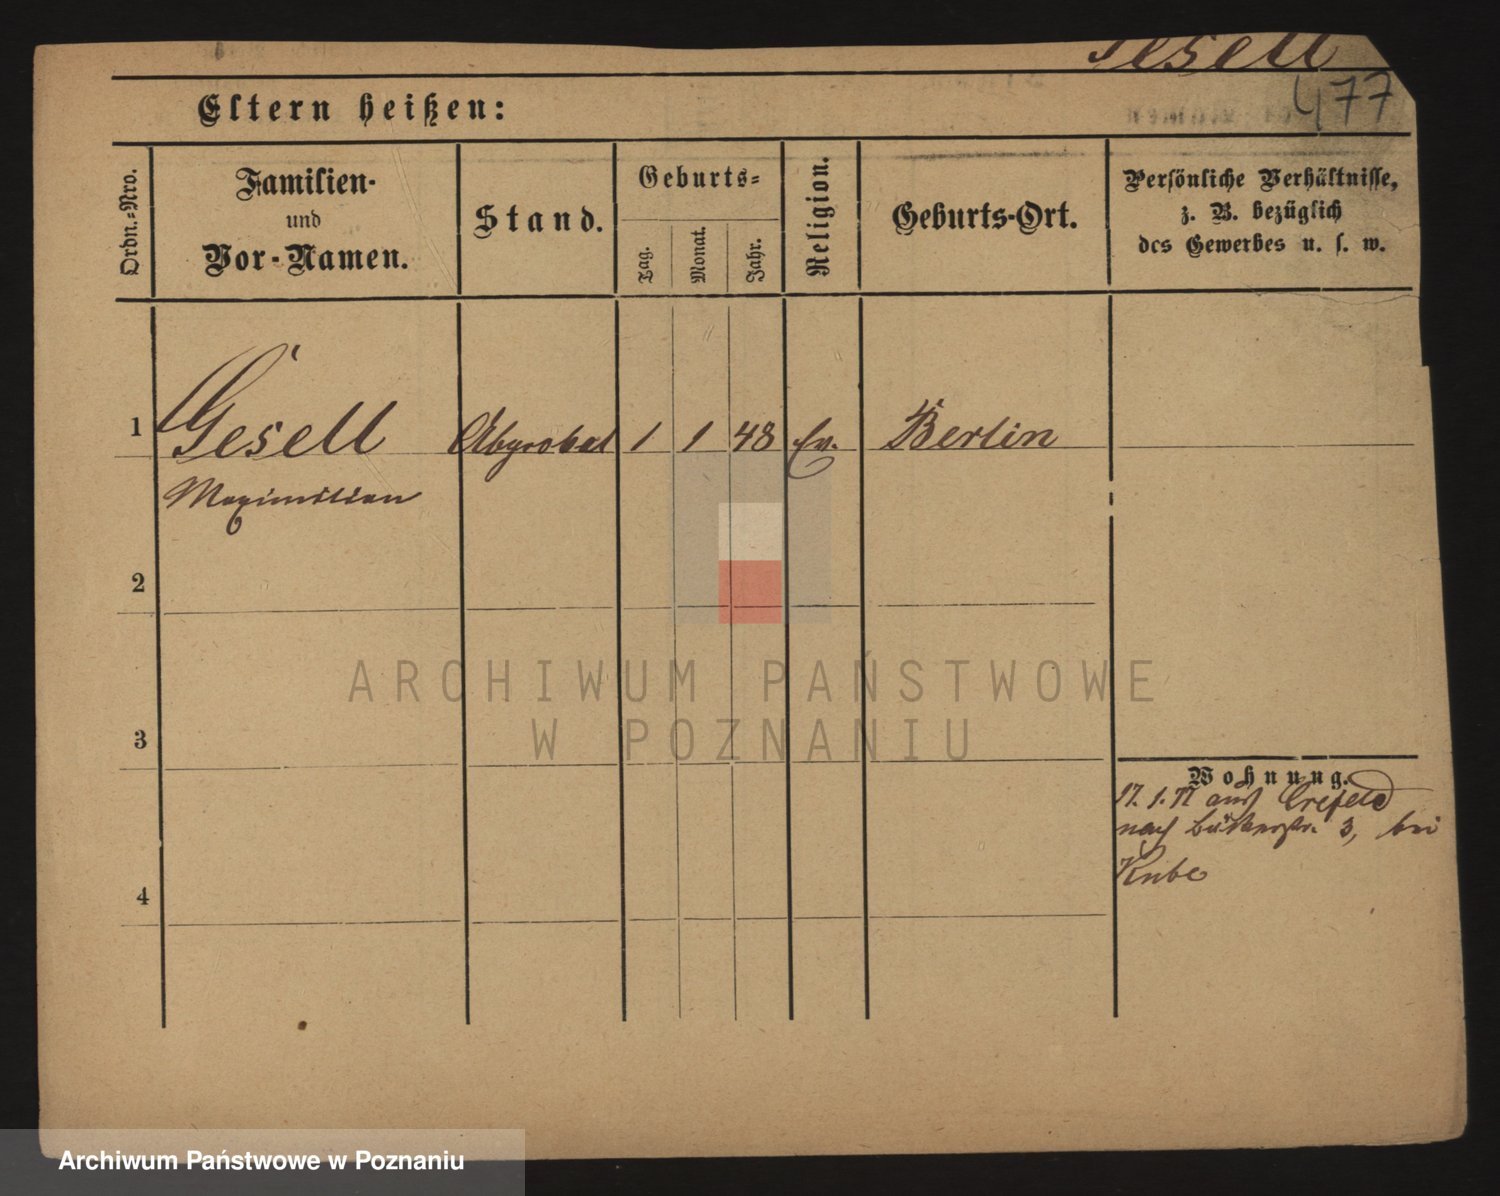 Gesell
477
Eltern heißen:
Ordn.-Nro.
Familien-
und
Vor-Namen.
Stand.
Geburts-
Tag.
Monat.
Jahr.
Religion.
Geburts-Ort.
Persönliche Verhältnisse,
z. B. bezüglich
des Gewerbes u. s. w.
1 Gesell 1 1 48 Ev. Berlin
Maximilian
2
3
4
Wohnung.
17. 1. 77 aus Crefeld
nach 3, bei
Kube
ARCHIWUM PAŃSTWOWE
W POZNANIU
Archiwum Państwowe w Poznaniu